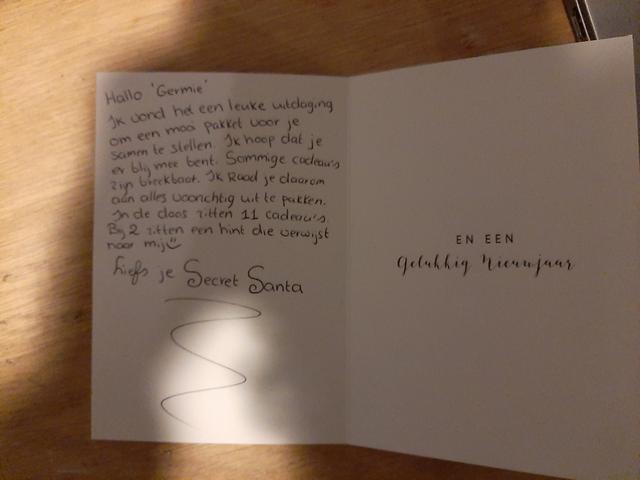 Hallo 'Germie'
Ik vond het een leuke uitdaging
om een mooi pakket voor je
samen te stellen. Ik hoop dat je
er blij mee bent. Sommige cadeau's
zijn breekbaar. Ik Raad je daarom
aan alles voorzichtig uit te pakken.
In de doos zitten 11 cadeau's.
Bij 2 zitten een hint die verwijst
naar mij
Liefs je Secret Santa
EN EEN
Gelukkig Nieuwjaar